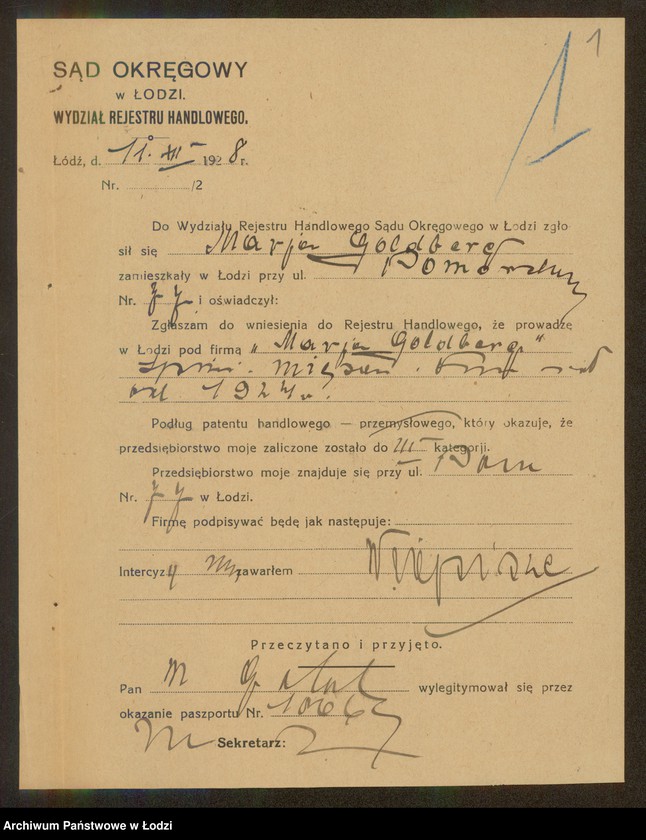 1
SĄD OKRĘGOWY
w ŁODZI.
WYDZIAŁ REJESTRU HANDLOWEGO.
Łódź, d. 11. XII 1928 r.
Nr. /2
Do Wydziału Rejestru Handlowego Sądu Okręgowego w Łodzi zgło
sił się Marja Goldberg
zamieszkały w Łodzi przy ul.
Nr. 77 i oświadczył:
Zgłaszam do wniesienia do Rejestru Handlowego, że prowadzę
w Łodzi pod firmą „Marja Goldberg"
1924 r.
Podług patentu handlowego — przemysłowego, który okazuje, że
przedsiębiorstwo moje zaliczone zostało do III kategorji.
Przedsiębiorstwo moje znajduje się przy ul. Pom
Nr. 77 w Łodzi.
Firmę podpisywać będę jak następuje:
Intercyzy nie zawarłem
Przeczytano i przyjęto.
Pan M G wylegitymował się przez
okazanie paszportu Nr.
Sekretarz:
Archiwum Państwowe w Łodzi